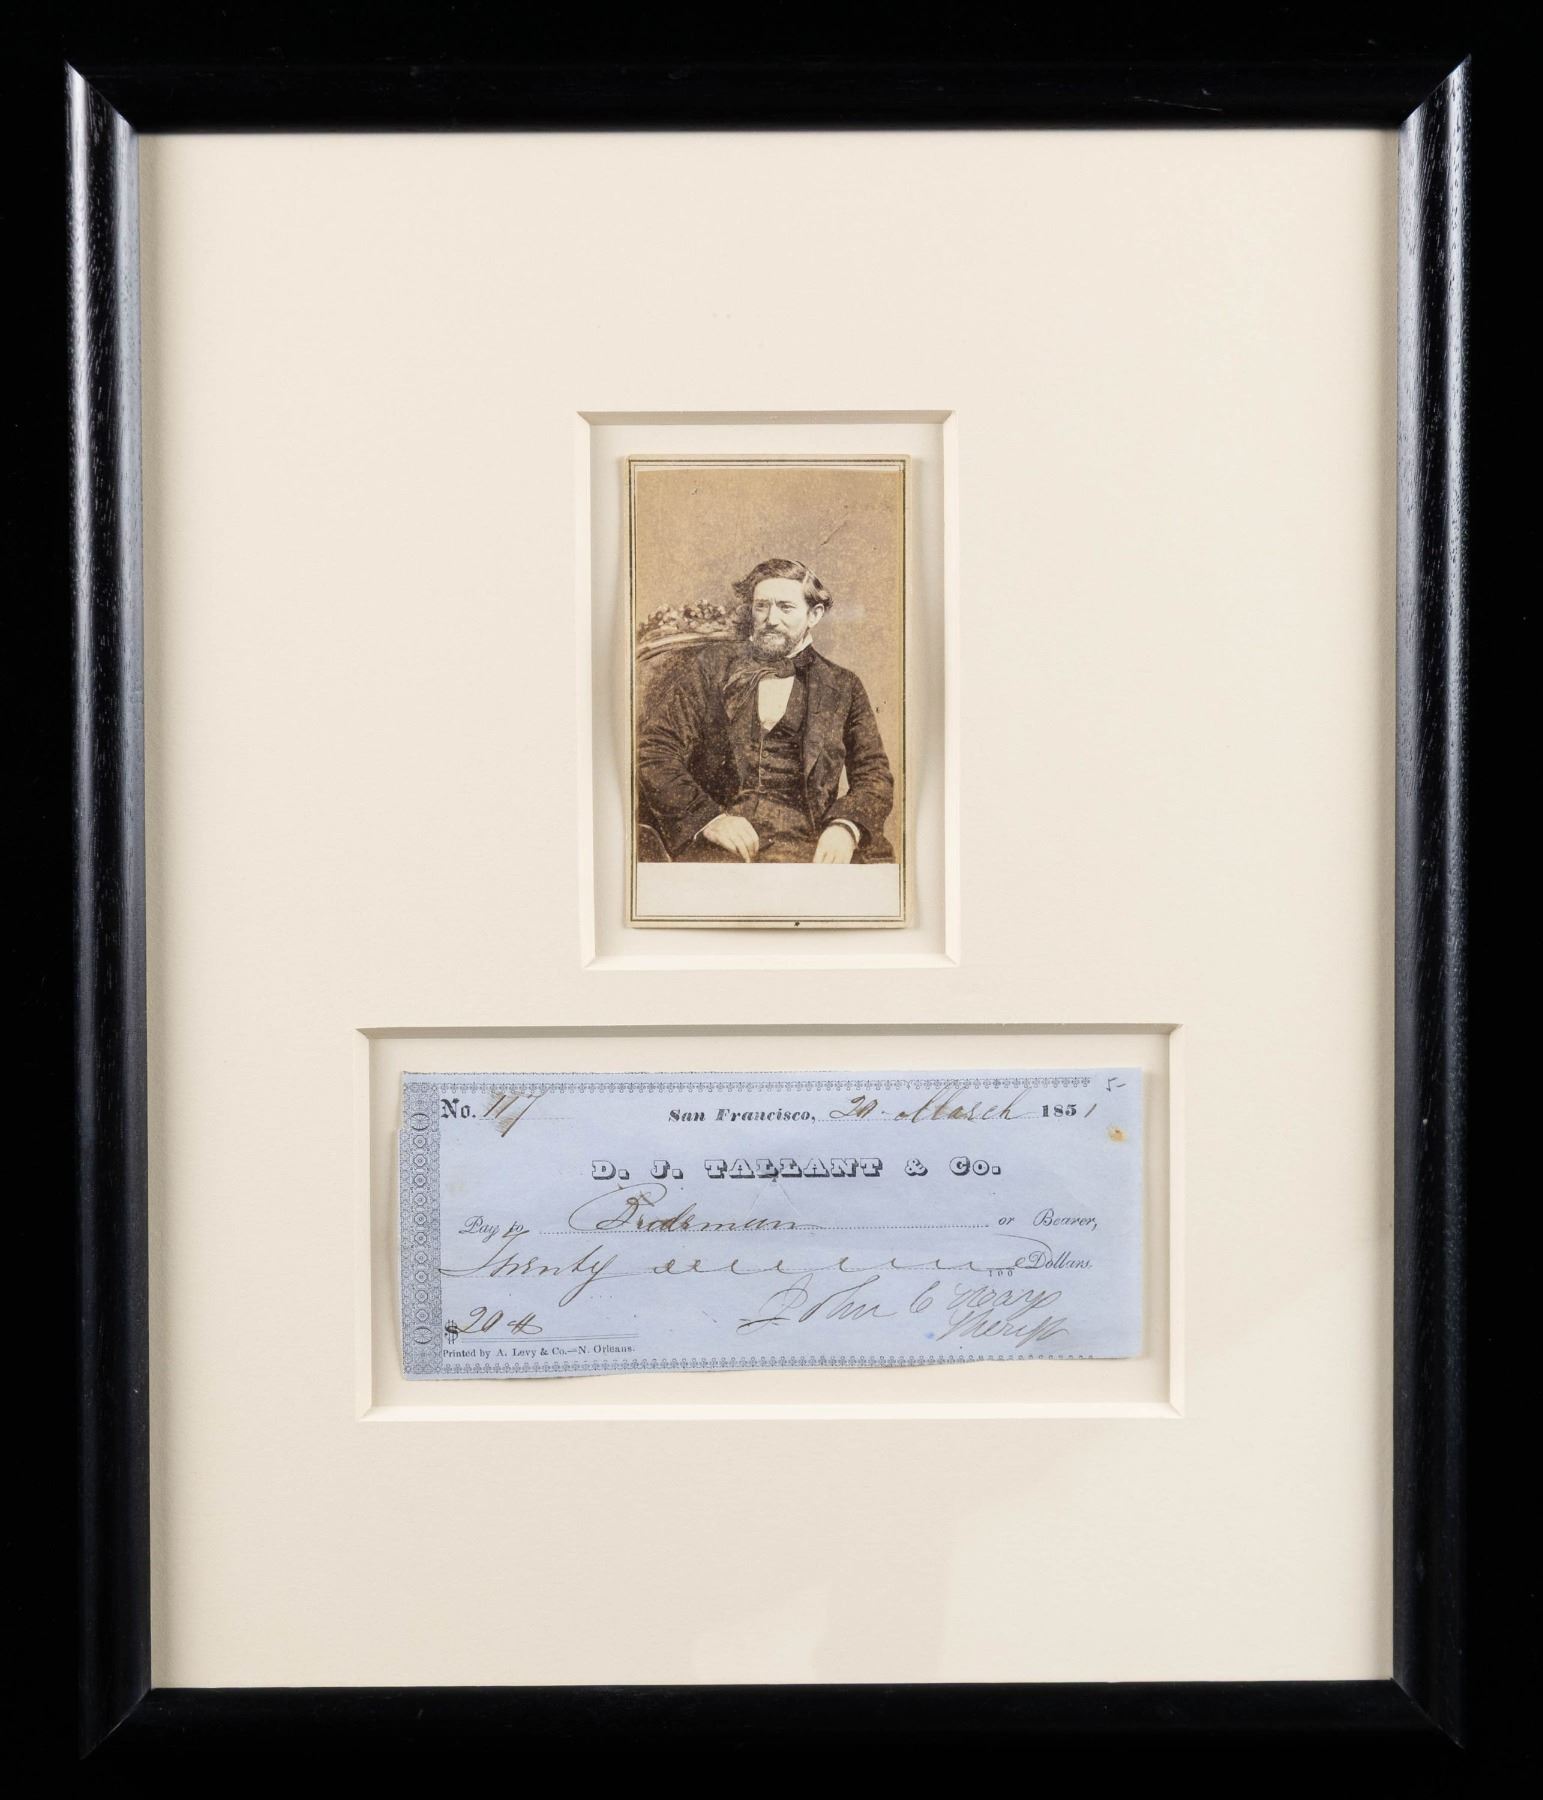 5-
No. 117 San Francisco, 20 March 1851
D. J. TALLANT & Co.
Pay to or Bearer,
Twenty 100 Dollars.
$20 John C Hays
Sheriff
Printed by A. Levy & Co.—N. Orleans.